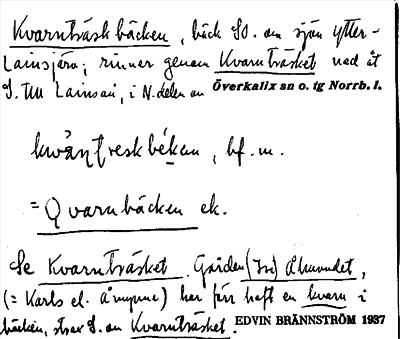 Kvarnträskbäcken, bäck SO. om sjön Ytter-
Lainsjärv; rinner genom Kvarnträsket ned åt
S. till Lainsån, i N. delen av Överkalix sn o. tg Norrb. l.
kwàṇtreskbékan, bf. m.
= Qvarnbäcken ek.
Se Kvarnträsket. Gården
(= Karls el. ) har förr haft en kvarn i
bäcken, strax S. om Kvarnträsket. EDVIN BRÄNNSTRÖM 1937